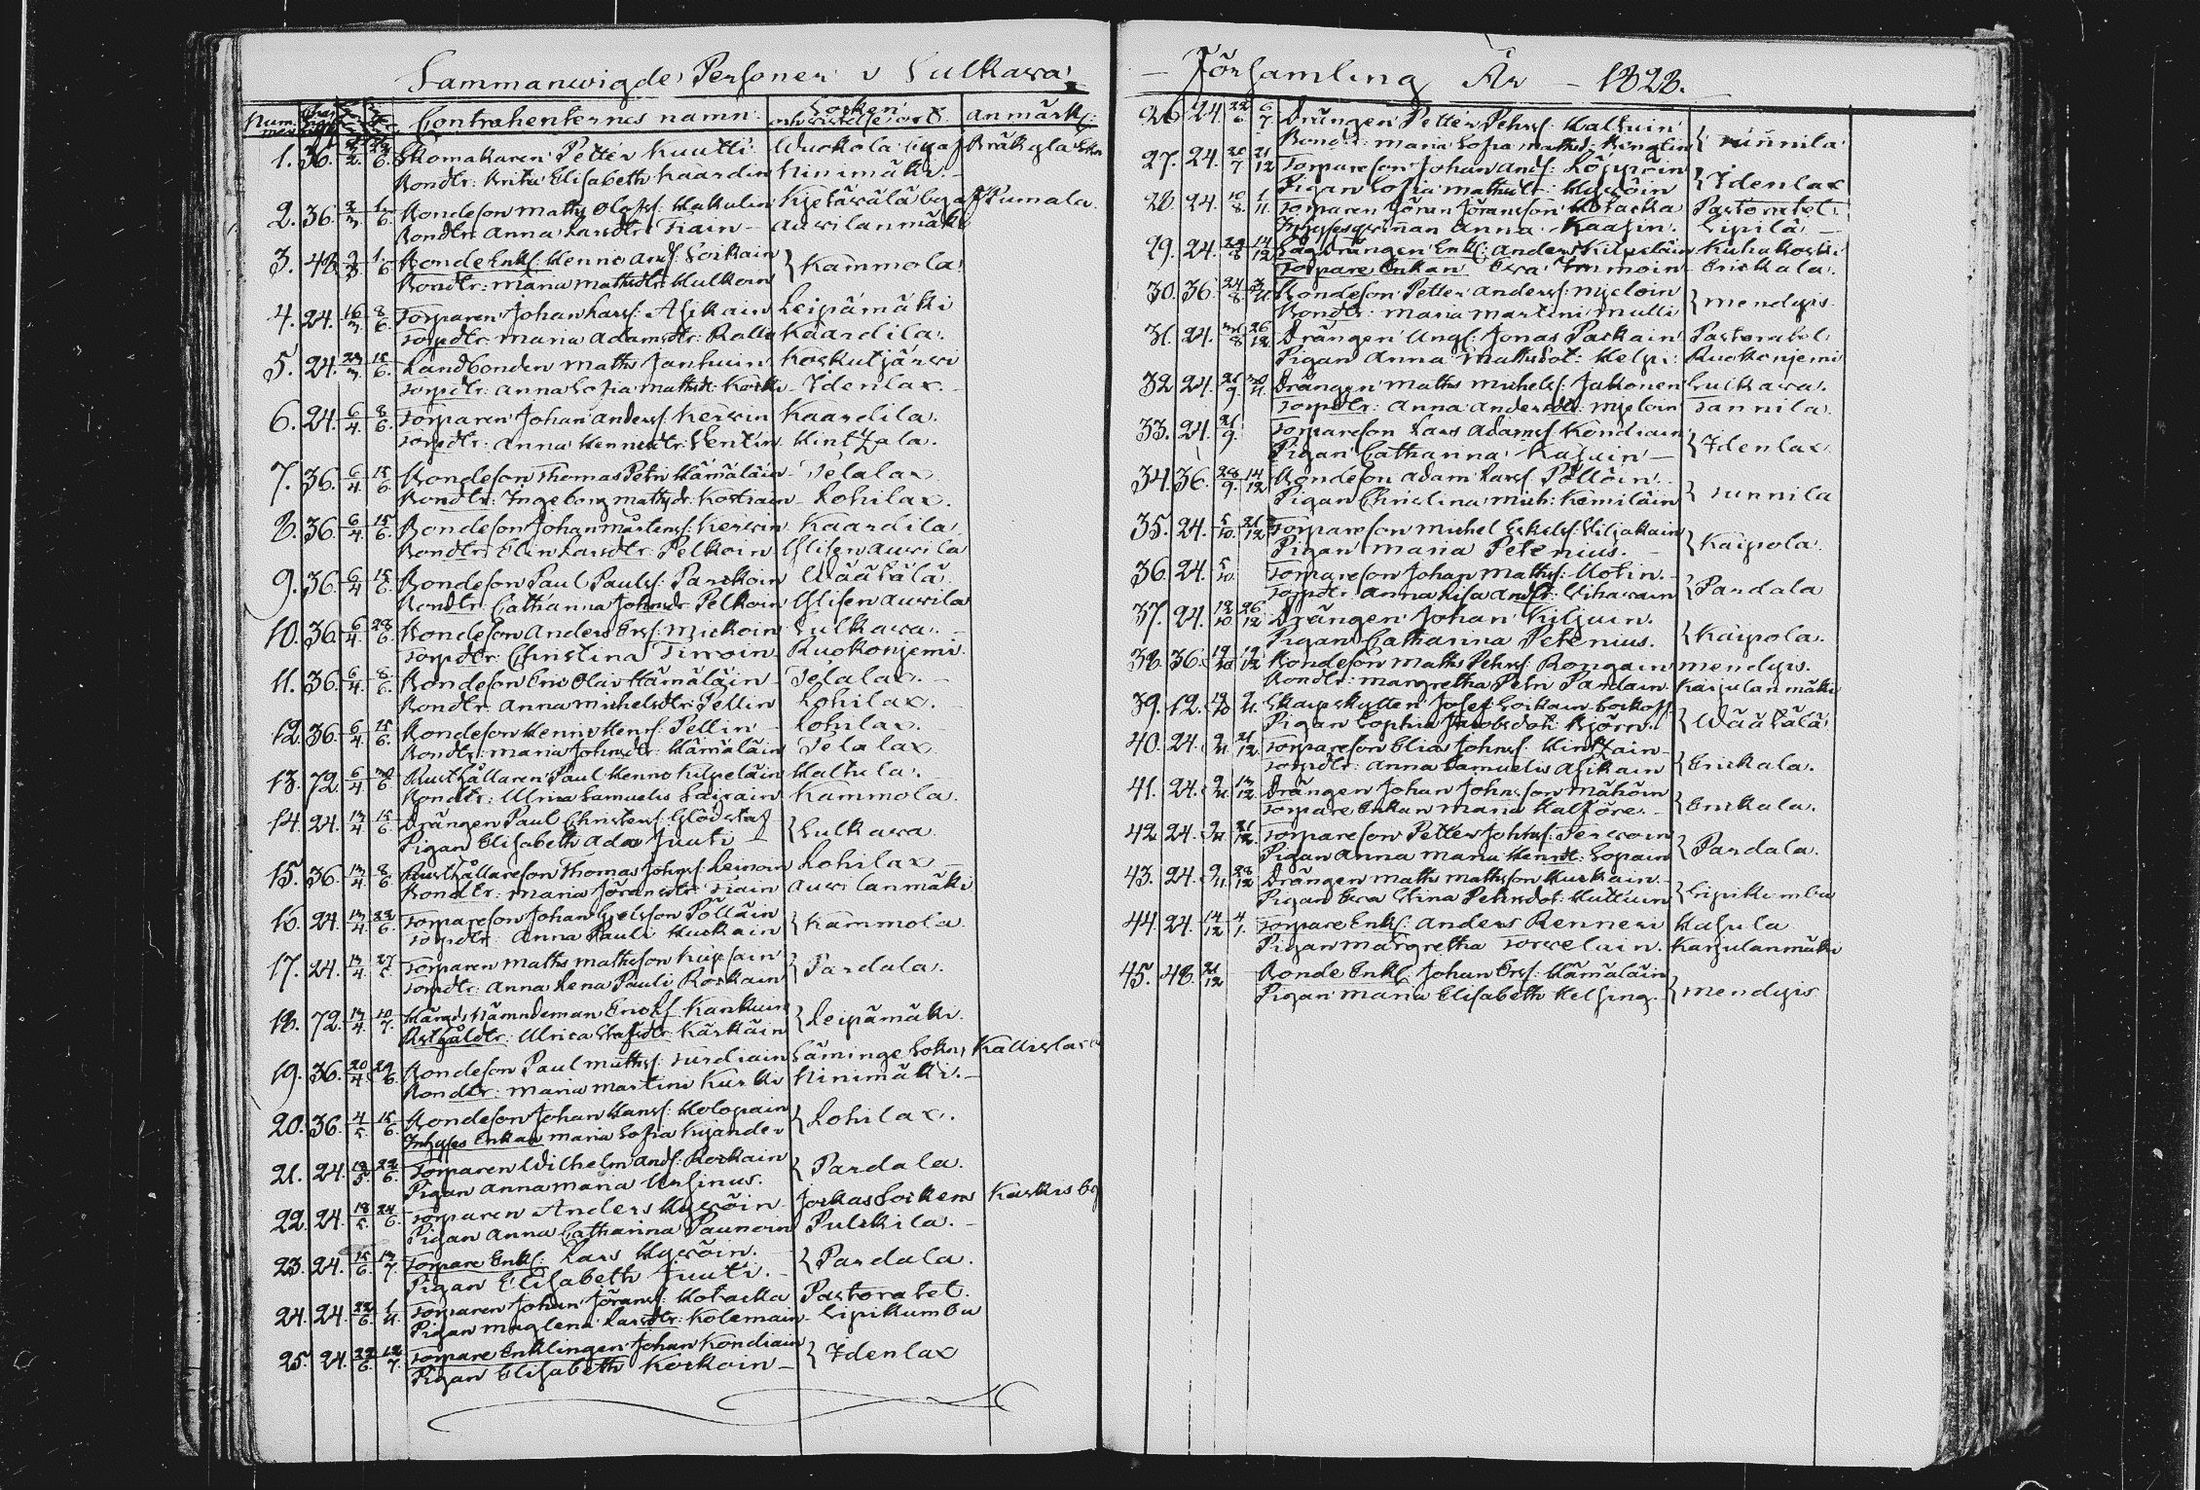 Sammanwigde Personer i Sulkawa
Contrahenternes namn Socken anmärk:
1. 36. Skomakaren Petter Kuutti Wuokola
Bondtr: Brita Elisabeth Kaardin Kinimäki
2. 36. 2/3 1/6 Bondeson Maths Olofss: Hakulin Puumala
Bondtr: Anna Larsdtr Tiain auwilanmäki
3. 48. 2/3 1/6 Bonde Enkl: Henric And: Soikain Kammola
Bondtr: Maria Mathsdtr Hulkoin
4. 24. 16/3 8/6 Torparen Johan Larss: Asikain Leipämäki
Torpdtr: Maria Adamsdtr: Ralli Kaardila.
5. 24. 23/3 15/6 Landbonden Maths Janhuin Koskutjärwi
Torpdtr: Anna Sofia Mathsdr: Idenlax
6. 24. 6/4 8/6 Torparen Johan Anderss: Kerwin Kaardila.
Torpdtr: Anna Henricsdtr: Ventin Hintzala.
7. 36. 6/4 15/6 Bondeson Thomas Petri Hämäläin Telalax
Bondtr: Ingeborg Mathsdr: Kostiain Lohilax.
8. 36. 6/4 15/6 Bondeson Johan Mårtenss: Kerwin Kaardila
Bondtr: Elin Larsdtr Pelkoin Iitlsenauwila
9. 36. 6/4 15/6 Bondeson Paul Paulss: Parkoin Wäätälä
Bondtr: Catharina Johansdr Pelkoin
10. 36. 6/4 28/6 Bondeson Anders Ericss: Mickoin Sulkawa.
Torpdtr: Christina Tirroin Ruokonjemi.
11. 36. 6/4 8/6 Bondeson Eric Olai Hämäläin Telalax.
Bondtr: Anna Michelsdtr: Pellin Lohilax.
12. 36. 6/4 15/6 Bondeson Henric Henrss: Pellin Lohilax.
Bondtr: Maria Johansdtr: Hämäläin Telalax
13. 72. 6/4 30/6 Rusthållaren Paul Henric Kilpeläin Halttula.
Bondtr: Ulrica Samuelis Kammola.
14. 24. 13/4 15/6 Drängen Paul Christerss: Glödstaf Sulkawa
Pigan Elisabeth Ada Juuti
15. 36. 13/4 8/6 Rusthållareson Thomas Johanss: Leinoin Lohilax
Bondtr: Maria Jöransdtr: Tiain auwilanmäki
16. 24. 13/4 22/6 Torpareson Johan Pölläin Kammola
Torpdtr: Anna Pauli Huckain
17. 24. 13/4 27/6 Torparen Maths Mathsson Kupiain Pardala.
Torpdtr: Anna Lena Pauli Roskain
18. 72. 13/4 10/7 Härads Nämndeman Kankuin Leipämäki.
Rusthåldtr: Ulrica Kärkäin
19. 36. 20/4 29/6 Bondeson Paul Mathss: Turdiain Säminge Sokn, Kallislax
Bondtr: Maria Martini Kurki Kinimäki.
20. 36. 4/5 15/6 Bondeson Johan Hanss: Holopain Lohilax.
Inhyses Enkan Maria Sofia Kijander
21. 24. 22/6 Torparen Wilhelm And: Roskain Pardala.
Pigan Anna Maria Ursinus.
22. 24. 18/5 24/6 Torparen Anders Hywöin Jockas Sockens
Pigan Anna Catharina Paunoin Pulkila.
23. 24. 15/6 13/7 Torpare Enkl: Lars Hywöin. Pardala.
Pigan Elisabeth Juuti.
24. 24. 22/6 Torparen Johan Jöranss: Hotacka Pastoratet.
Pigan Maglena Larsdtr: Kolemain Sipikumbu
25. 24. 22/6 12/7 Torpare Enklingen Johan Kondiain Idenlax
Pigan Elisabeth Korkoin
Församling År 1828.
26. 24. 22/6 6/7 Drängen Petter Pehrss: Halluin Tunnila
Bondtr: Maria Sofia Mathsd: Bengtin
27. 24. 20/7 21/12 Torpareson Johan And: Löppöin Idenlax
Pigan Sofia Mathsdtr: Hywöin
28. 24. 10/8 1/11 Torparen Göran Göransson Hotacka Pastoratet.
Inhysesqwinnan Anna Kaasin. Sipilä
29. 24. 24/8 14/12 Enkl: Anders Kilpeläin Kuhakoski
Torpare Enkan Ewa Immoin Erickala.
30. 36. 24/8 Bondeson Petter Anderss: Nyeloin Mendyis
Bondtr: Maria Martini Mulli
31. 24. 31/8 26/12 Drängen Ungk: Jonas Parkain Pastoratet
Pigan Anna Mathsdot: Help: Ruokonjemi
32. 24. 21/9 30/11 Drängen Maths Michelss: Jukonen Sulkawa.
Torpdtr: Anna Andersdtr: Nyeloin Tannila.
33. 24. 21/9 Torpareson Lars Adamss: Kondiain Idenlax
Pigan Catharina Kasuin
34. 36. 28/9 14/12 Bondeson Adam Larss: Pölläin Tunnila
Pigan Christina Mich: Kemiläin
35. 24. 5/10 21/12 Torpareson Michel Eskelss: Siljakain Kaipola.
Pigan Maria Petenius.
36. 24. 5/10 Torpareson Johan Mathss: Hotin. Pardala
Torpdtr: Anna Lisa Andtr: Wihawain
37. 24. 12/10 26/12 Drängen Johan Kiljuin. Kaipola.
Pigan Catharina Petenius.
38. 36. 19/10 Bondeson Maths Pehrss: Rongain Mendyis.
Bondtr: Margretha Petri Pardain Karjulanmäki
39. 12. 19/10 Skarpskytten Josef Soikain Wäätälä
Pigan Sophia Jacobsdot: Björn.
40. 24. 21/12 Torpareson Elias Johanss: Hintzain Erickala.
Torpdtr: Anna Samuelis Asikain
41. 24. 13/12 Drängen Johan Johansson Mähöin Erickala.
Torpare Enkan Maria Halföre.
42. 24. 21/12 Torpareson Petter Johanss: Terwoin Pardala.
Pigan Anna Maria Henrdt: Sopain
43. 24. 28/12 Drängen Maths Mathsson Huckain Sipikumbu
Pigan Ewa Stina Pehrsdot: Huttuin
44. 24. 14/12 4/1 Torpare Enkl: Anders Renneri Hasula
Pigan Margretha Torwelain. Karjulanmäki
45. 48. 21/12 Bonde Enkl: Johan Ericss: Hämäläin Mendyis
Pigan Maria Elisabeth Helsing.